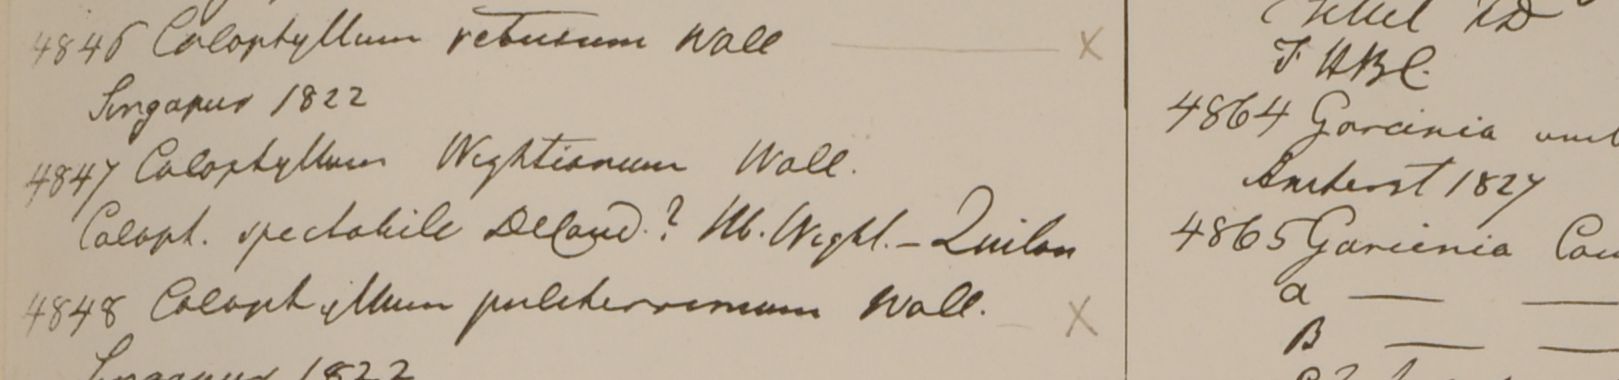 4846 Calophyllum retusum Wall X
Singapur 1822
4847 Calophyllum Wightianum Wall.
Caloph. spectabile DeCand.? Hb. Wight. – Quilon
4848 Calophyllum pulcherrimum Wall. X
Singapur 1822
F HBC.
4864 Garcinia
Amherst 1827
4865 Garcinia
a — —
B — —